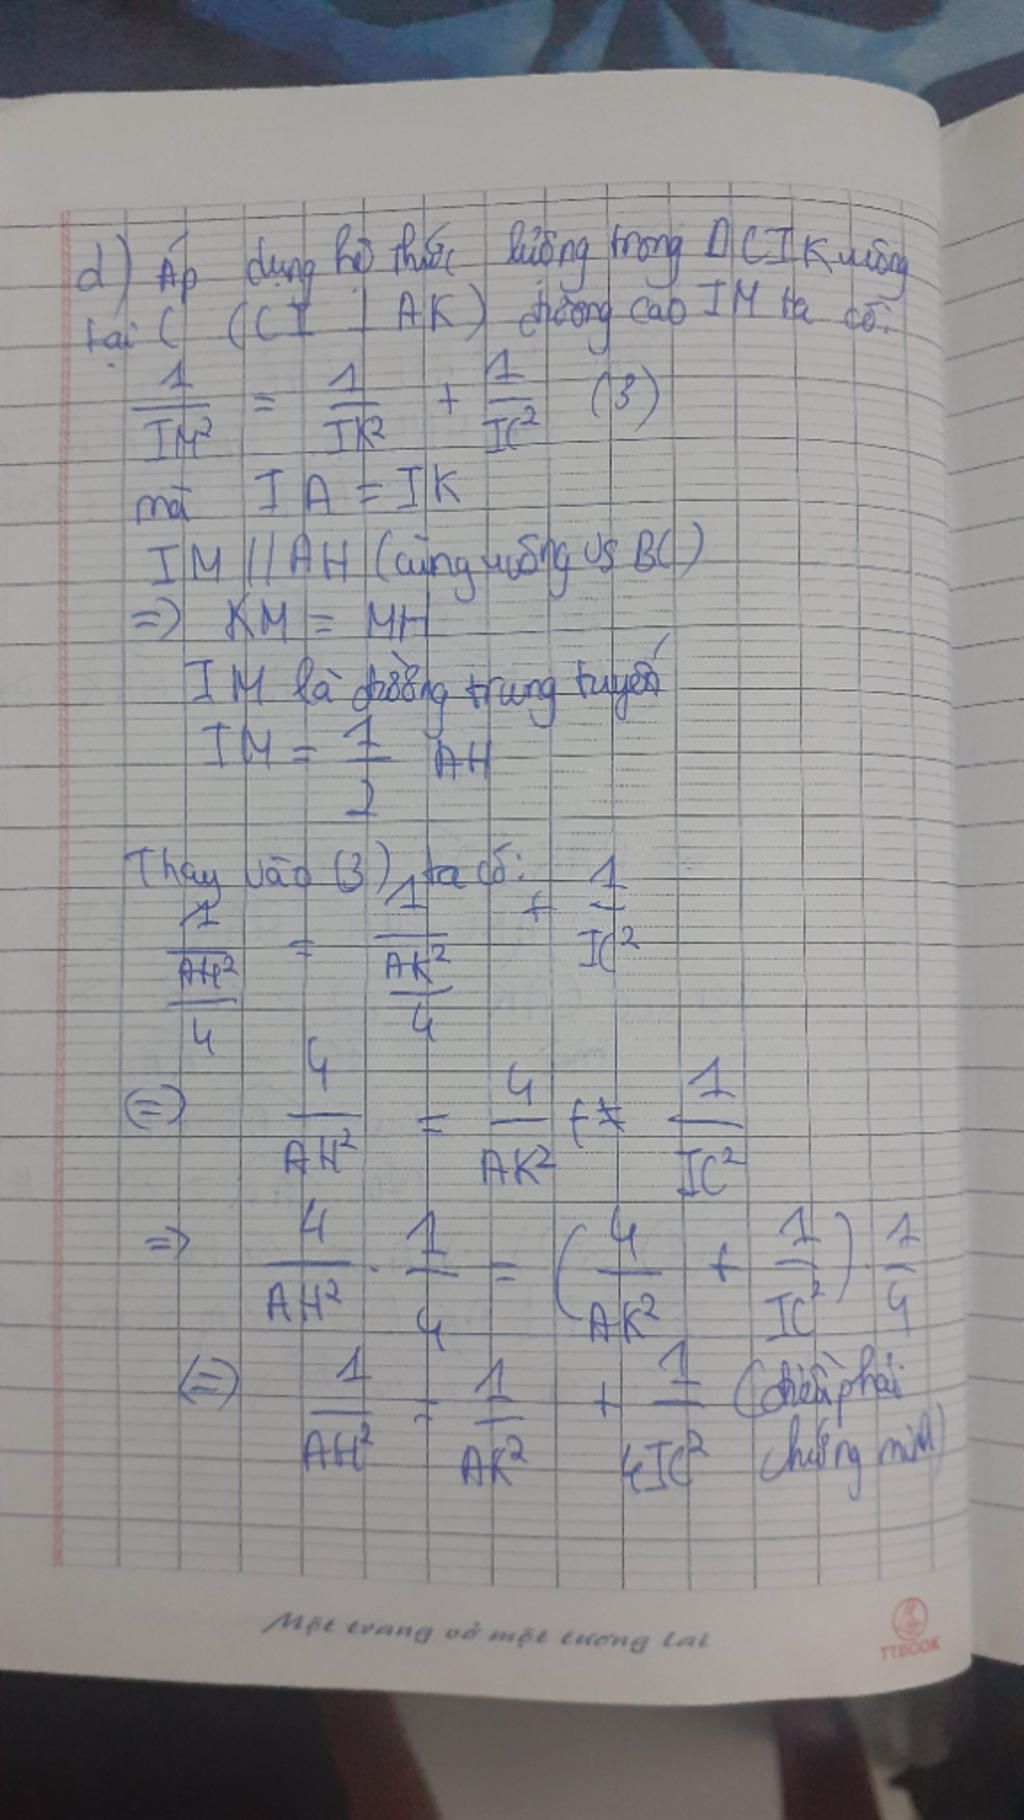 d) Áp dụng hệ thức lượng trong Δ CIK vuông
tại C (CI ⊥ AK) đường cao IM ta có:
1/IM² = 1/IK² + 1/IC² (3)
mà IA = IK
IM // AH (cùng vuông vs BC)
=> KM = MH
IM là đường trung tuyến
IM = 1/2 AH
Thay vào (3), ta có:
1/(AH²/4) = 1/(AK²/4) + 1/IC²
(=) 4/AH² = 4/AK² + 1/IC²
=> 4/AH² . 1/4 = (4/AK² + 1/IC²) . 1/4
(=) 1/AH² = 1/AK² + 1/4IC² (điều phải
chứng minh)
Một trang vở một tương lai
TTBOOK